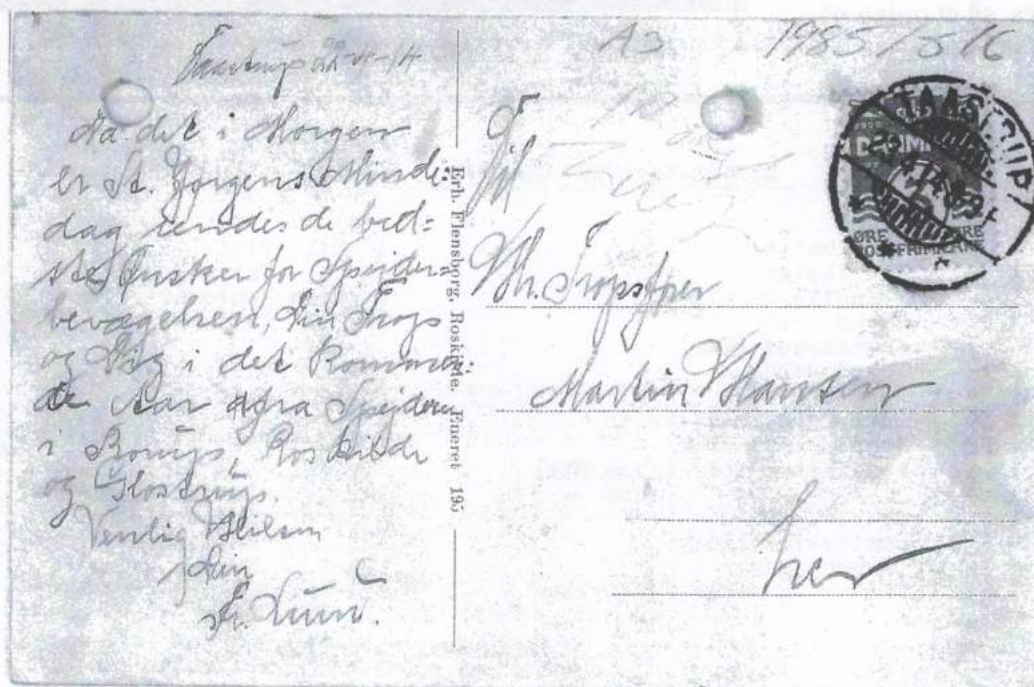 Taastrup 22-4-14
Da det i Morgen
er St. Jørgens Minde-
dag sendes de bed-
ste Ønsker for Spejder
bevægelsen, Din Trop
og Dig i det Kommen-
de Aar fra Spejderne
i Borup, Roskilde
og Glostrup.
Venlig Hilsen
Din
Fr. Lund.
Erh. Flensborg, Roskilde. Eneret 195
A3 1985/516
Til
Hr. Tropsfører
Martin Hansen
her
TAASTRUP
22.4.14
ØRE
POSTFRIMÆRKE